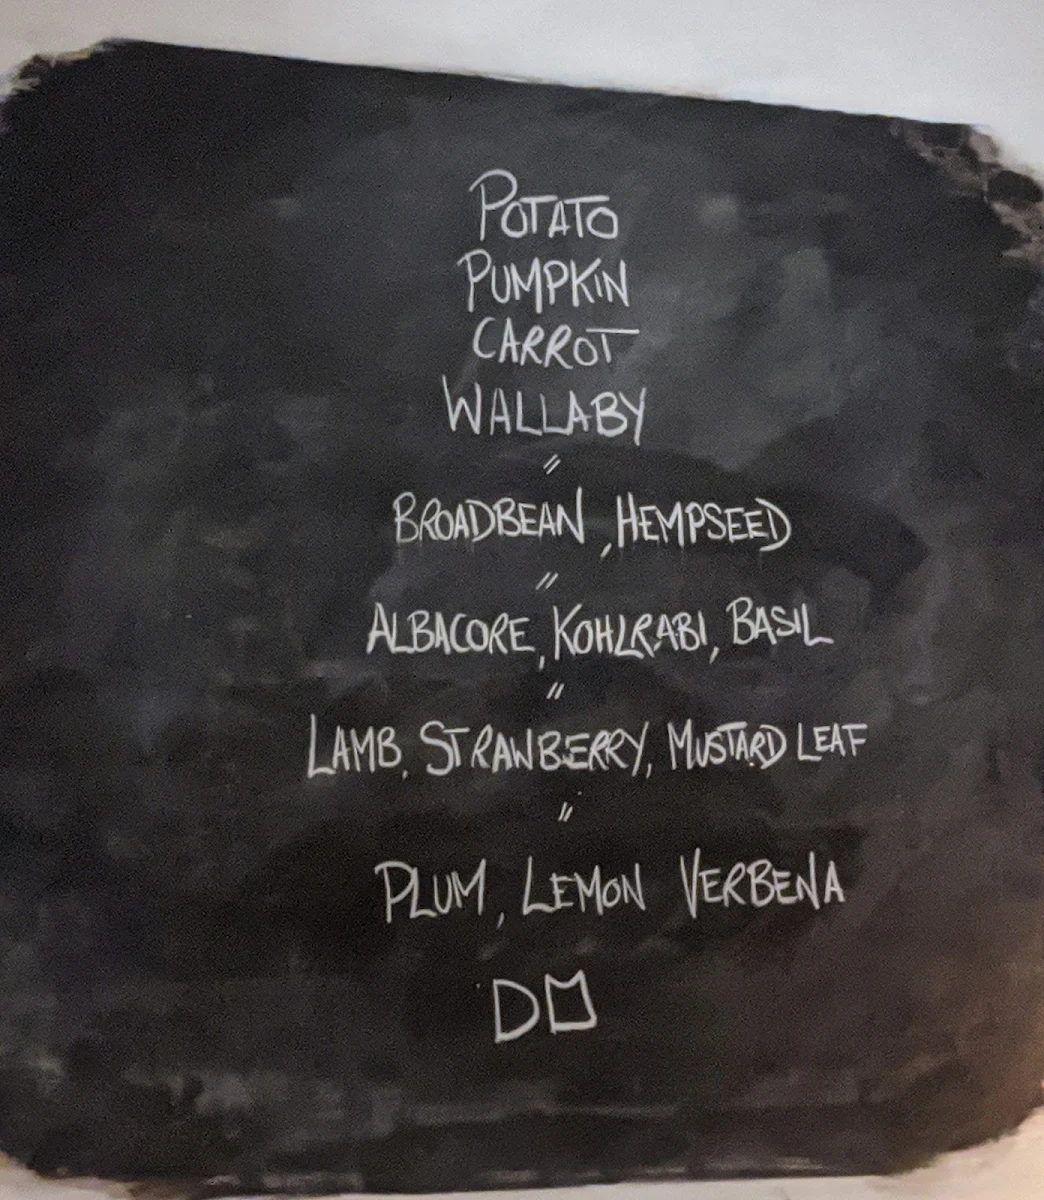 POTATO
PUMPKIN
CARROT
WALLABY
//
BROADBEAN, HEMPSEED
//
ALBACORE, KOHLRABI, BASIL
//
LAMB, STRAWBERRY, MUSTARD LEAF
//
PLUM, LEMON VERBENA